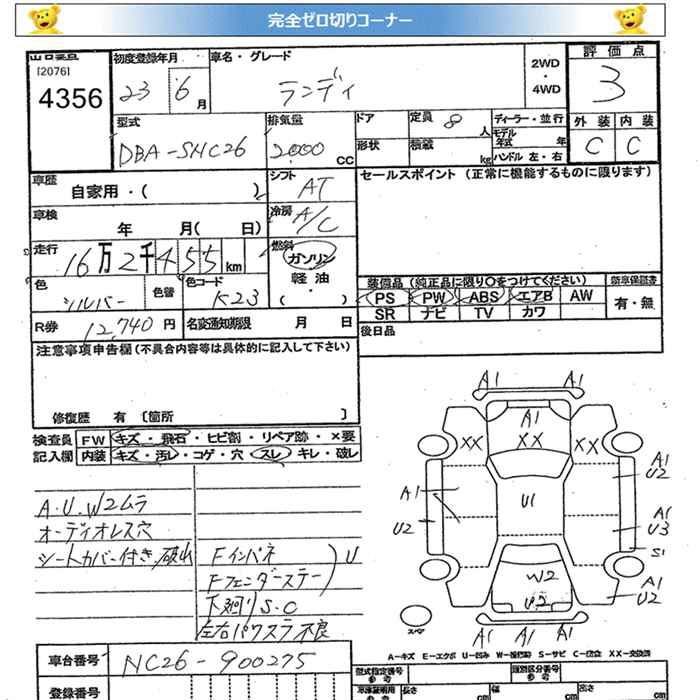 完全ゼロ切りコーナー
[2076]
4356
初度登録年月
23 6 月
車名・グレード
ランディ
2WD
・
4WD
評価点
3
外装 内装
C C
型式
DBA-SHC26
排気量
2,000 CC
ドア
形状
定員 8 人
積載 kg
ディーラー・並行
モデル年式 年
ハンドル 左・右
車歴
自家用・( )
シフト AT
セールスポイント (正常に機能するものに限ります)
車検
年 月( 日)
冷房 A/C
走行
16万2千455 km
燃料
ガソリン
軽油
・
( )
色
シルバー
色替
色コード
K23
装備品 (純正品に限り○をつけてください) 新車保証書
PS PW ABS エアB AW 有・無
SR ナビ TV カワ
R券 12,740 円
名変通知期限 月 日
後日品
注意事項申告欄(不具合内容等は具体的に記入して下さい)
修復歴 有 [箇所 ]
検査員
記入欄
FW キズ・飛石・ヒビ割・リペア跡・×要
内装 キズ・汚レ・コゲ・穴 スレ・キレ・破レ
A.U.W2ムラ
オーディオレス穴
シートカバー付き,破出
Fインパネ
Fフェンダーステー
U
下廻りS.C
左右パワステ不良
A1 A1
A1
XX XX XX
A1
U2
A1
U2
U1
A1
U3
S1
W2
U2
A1
U2
スペア
A1 A1 A1
A-キズ E-エクボ U-凹み W-補修跡 S-サビ C-腐食 XX-交換済
車台番号 NC26-900275
登録番号
型式指定番号
参考
類別区分番号
参考
長さ cm
幅 cm
高さ cm